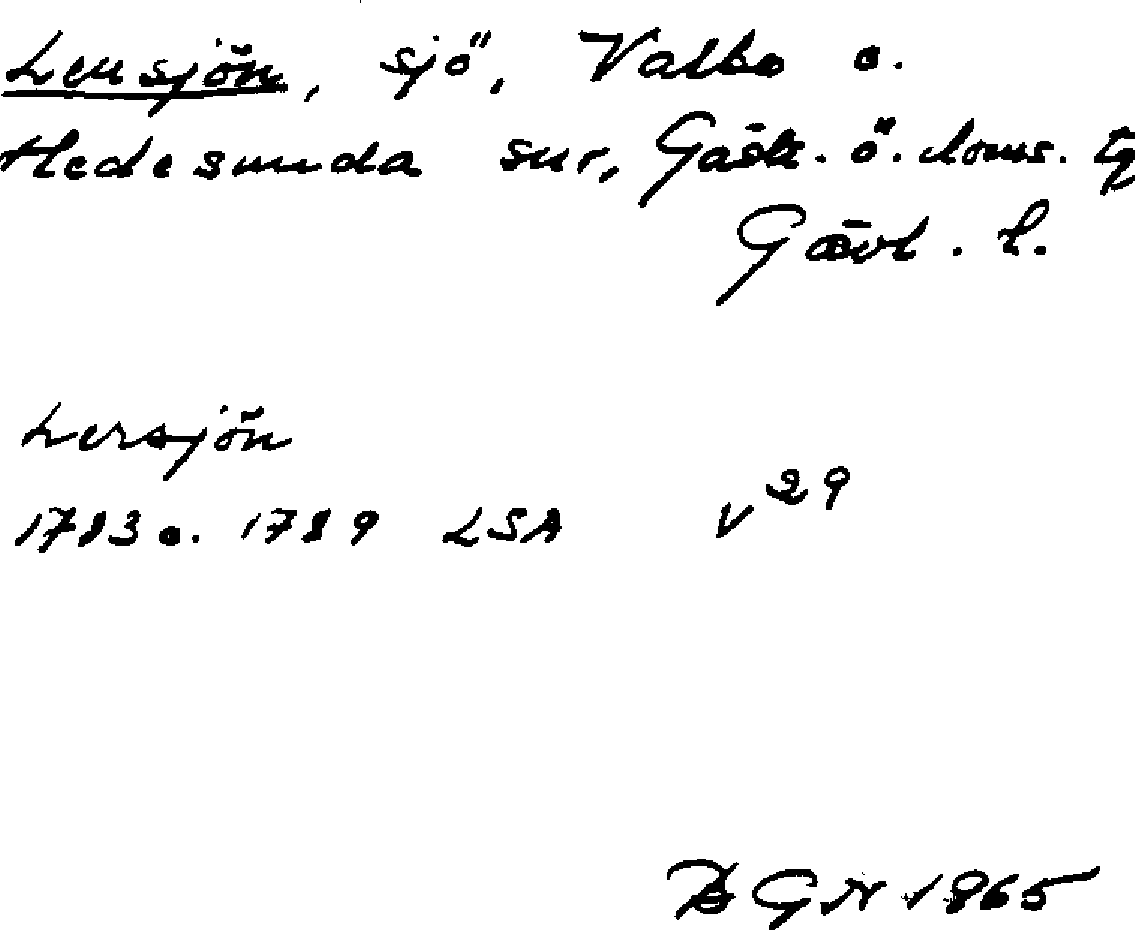 Lensjön, sjö, Valbo o.
Hedesunda snr, Gästr. ö. doms. tg
Gävl. l.
Lersjön
1783 o. 1789 LSA V 29
GN 1865